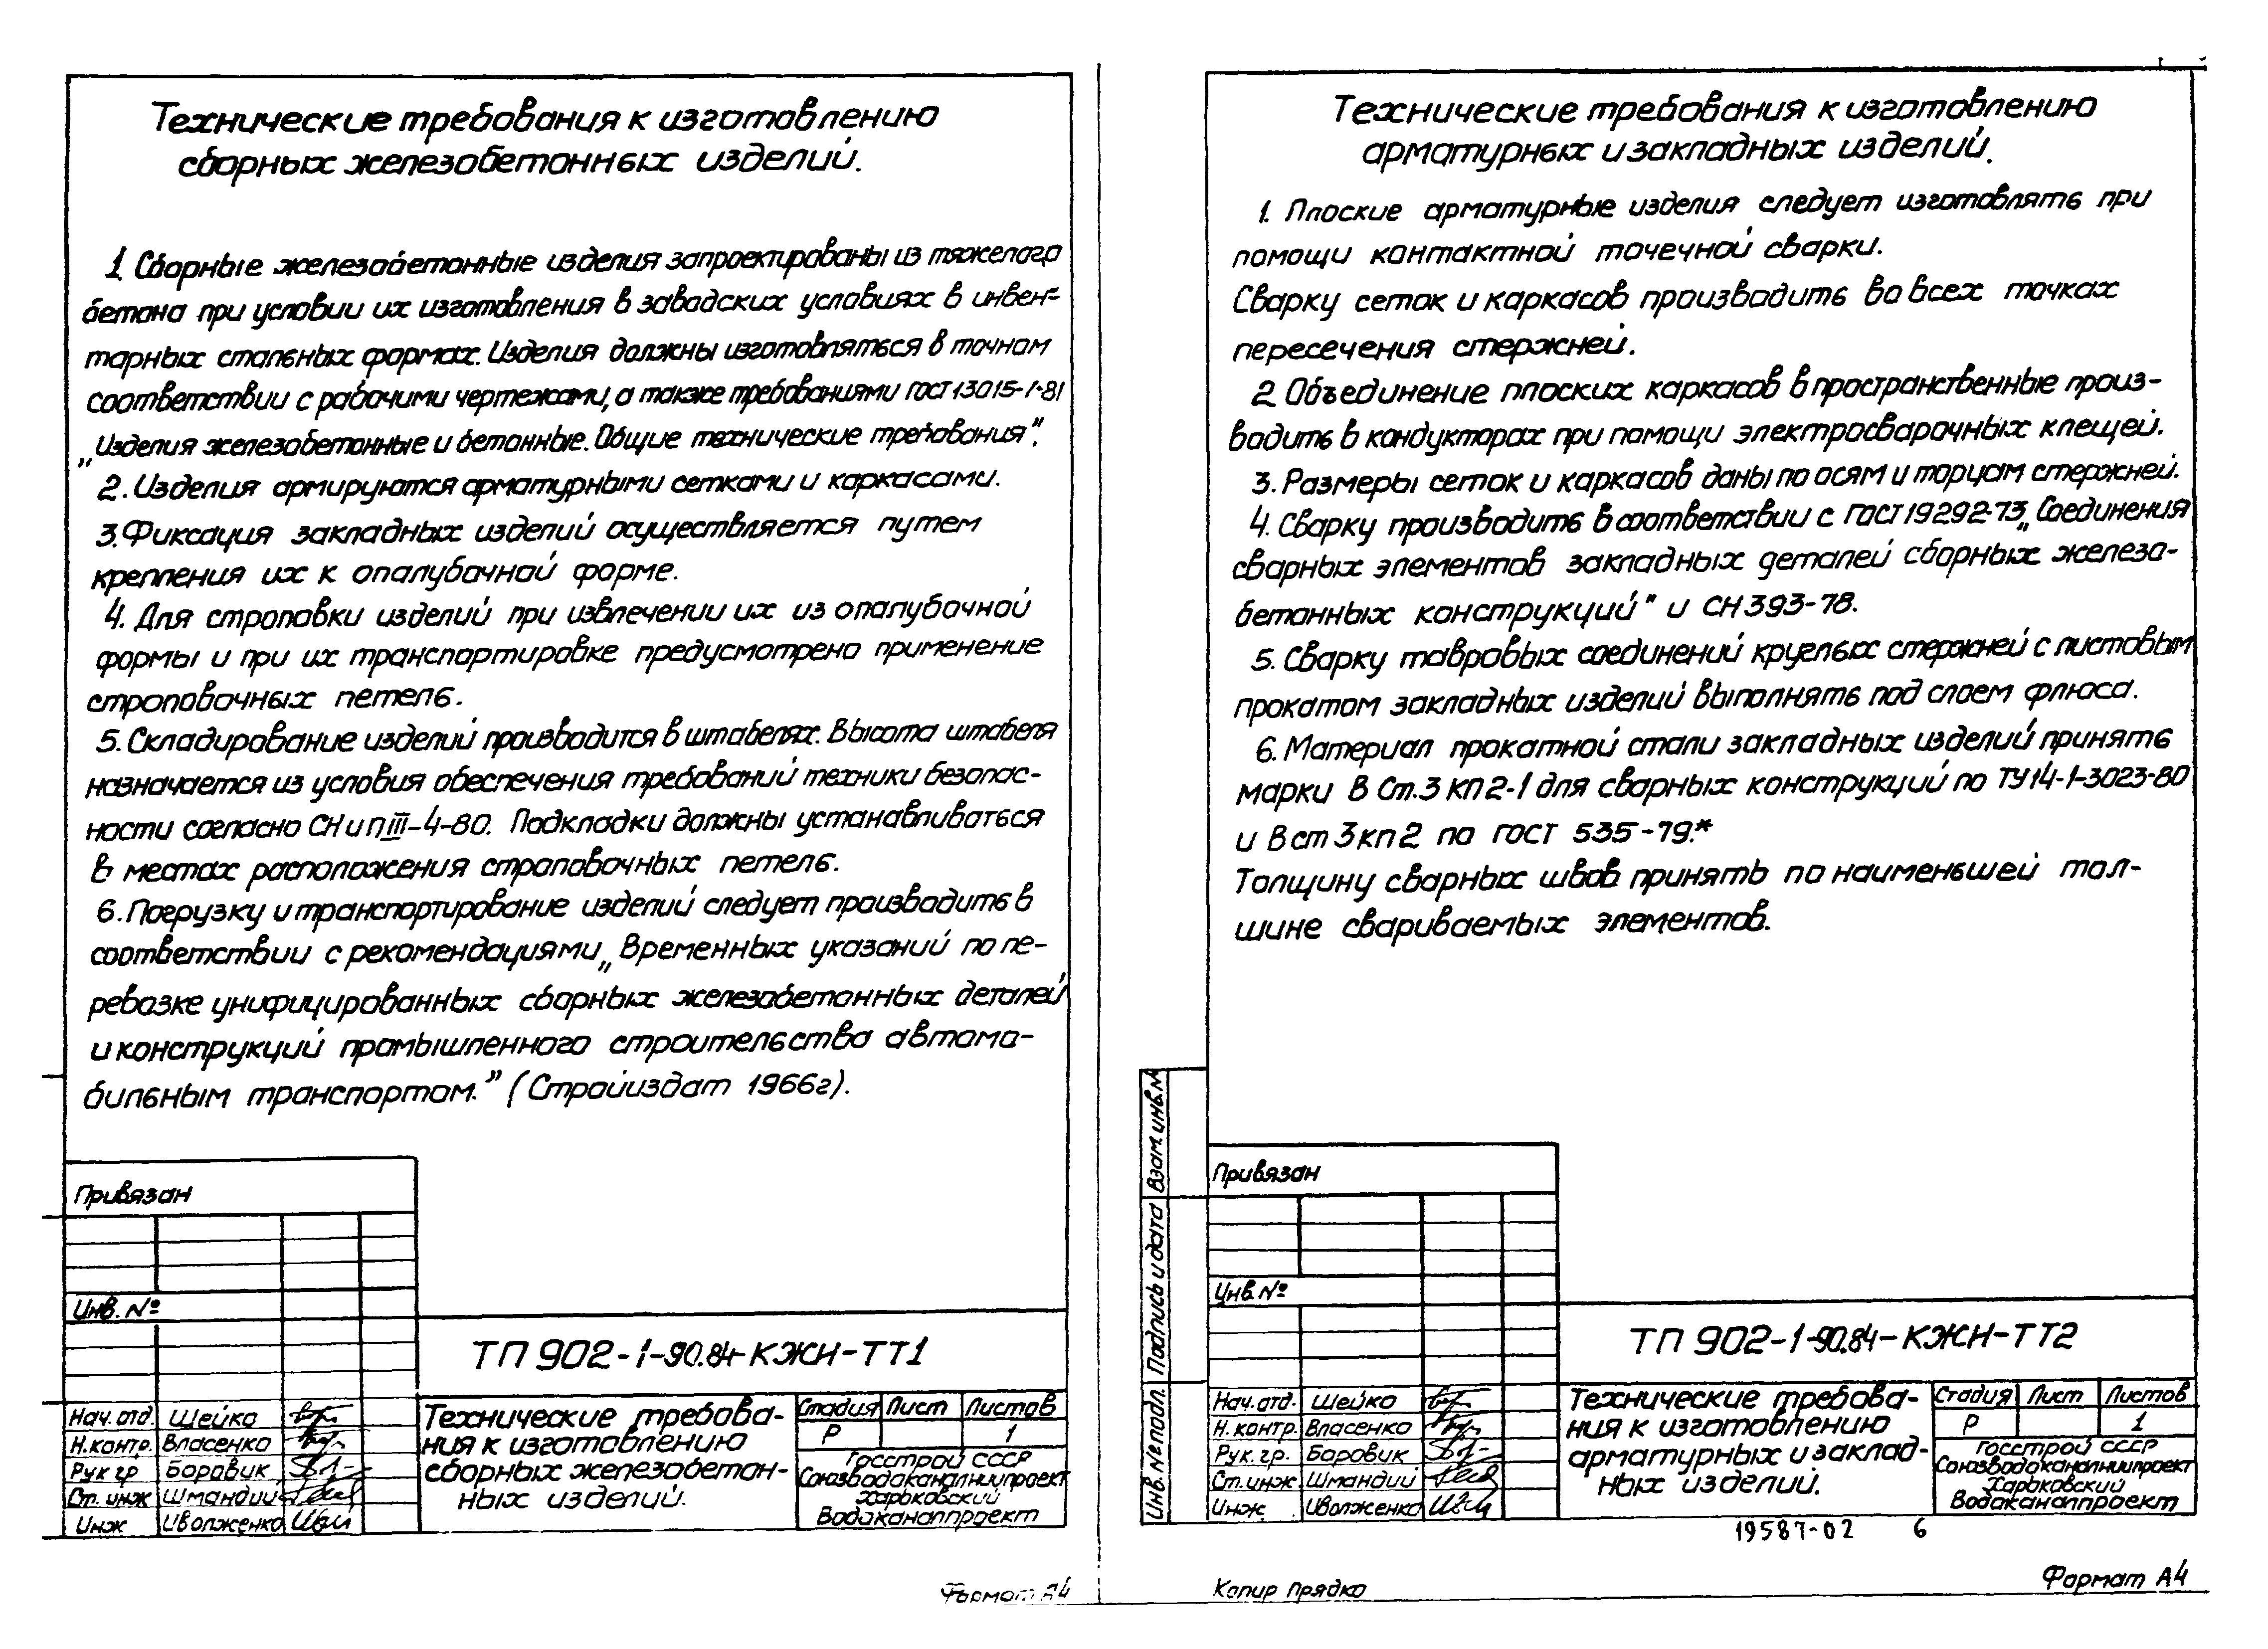 Технические требования к изготовлению
сборных железобетонных изделий.
1. Сборные железобетонные изделия запроектированы из тяжелого
бетона при условии их изготовления в заводских условиях в инвен-
тарных стальных формах. Изделия должны изготовляться в точном
соответствии с рабочими чертежами, а также требованиями ГОСТ 13015-1-81
„Изделия железобетонные и бетонные. Общие технические требования".
2. Изделия армируются арматурными сетками и каркасами.
3. Фиксация закладных изделий осуществляется путем
крепления их к опалубочной форме.
4. Для строповки изделий при извлечении их из опалубочной
формы и при их транспортировке предусмотрено применение
строповочных петель.
5. Складирование изделий производится в штабелях. Высота штабеля
назначается из условия обеспечения требований техники безопас-
ности согласно СНиП III-4-80. Подкладки должны устанавливаться
в местах расположения строповочных петель.
6. Погрузку и транспортирование изделий следует производить в
соответствии с рекомендациями „Временных указаний по пе-
ревозке унифицированных сборных железобетонных деталей
и конструкций промышленного строительства автомо-
бильным транспортом." (Стройиздат 1966г).
Привязан
Инв. №
ТП 902-1-90.84-КЖИ-ТТ1
Нач. отд. Шейко
Н.контр. Власенко
Рук гр Боровик
Ст. инж Шмандий
Инж Иволженко
Технические требова-
ния к изготовлению
сборных железобетон-
ных изделий.
Стадия Лист Листов
Р 1
Госстрой СССР
Союзводоканалниипроект
Харьковский
Водоканалпроект
Формат А4
Технические требования к изготовлению
арматурных и закладных изделий.
1. Плоские арматурные изделия следует изготовлять при
помощи контактной точечной сварки.
Сварку сеток и каркасов производить во всех точках
пересечения стержней.
2. Объединение плоских каркасов в пространственные произ-
водить в кондукторах при помощи электросварочных клещей.
3. Размеры сеток и каркасов даны по осям и торцам стержней.
4. Сварку производить в соответствии с ГОСТ 19292-73 „Соединения
сварных элементов закладных деталей сборных железо-
бетонных конструкций" и СН 393-78.
5. Сварку тавровых соединений круглых стержней с листовым
прокатом закладных изделий выполнять под слоем флюса.
6. Материал прокатной стали закладных изделий принять
марки В Ст.3 КП2-1 для сварных конструкций по ТУ14-1-3023-80
и Вст 3кп2 по ГОСТ 535-79.*
Толщину сварных швов принять по наименьшей тол-
шине свариваемых элементов.
Взам. инв.№
Подпись и дата
Инв. № подл.
Привязан
Инв. №
ТП 902-1-90.84-КЖИ-ТТ2
Нач. отд. Шейко
Н. контр. Власенко
Рук. гр. Боровик
Ст. инж. Шмандий
Инж. Иволженко
Технические требова-
ния к изготовлению
арматурных и заклад-
ных изделий.
Стадия Лист Листов
Р 1
Госстрой СССР
Союзводоканалниипроект
Харьковский
Водоканалпроект
19587-02 6
Копир Прядко
Формат А4